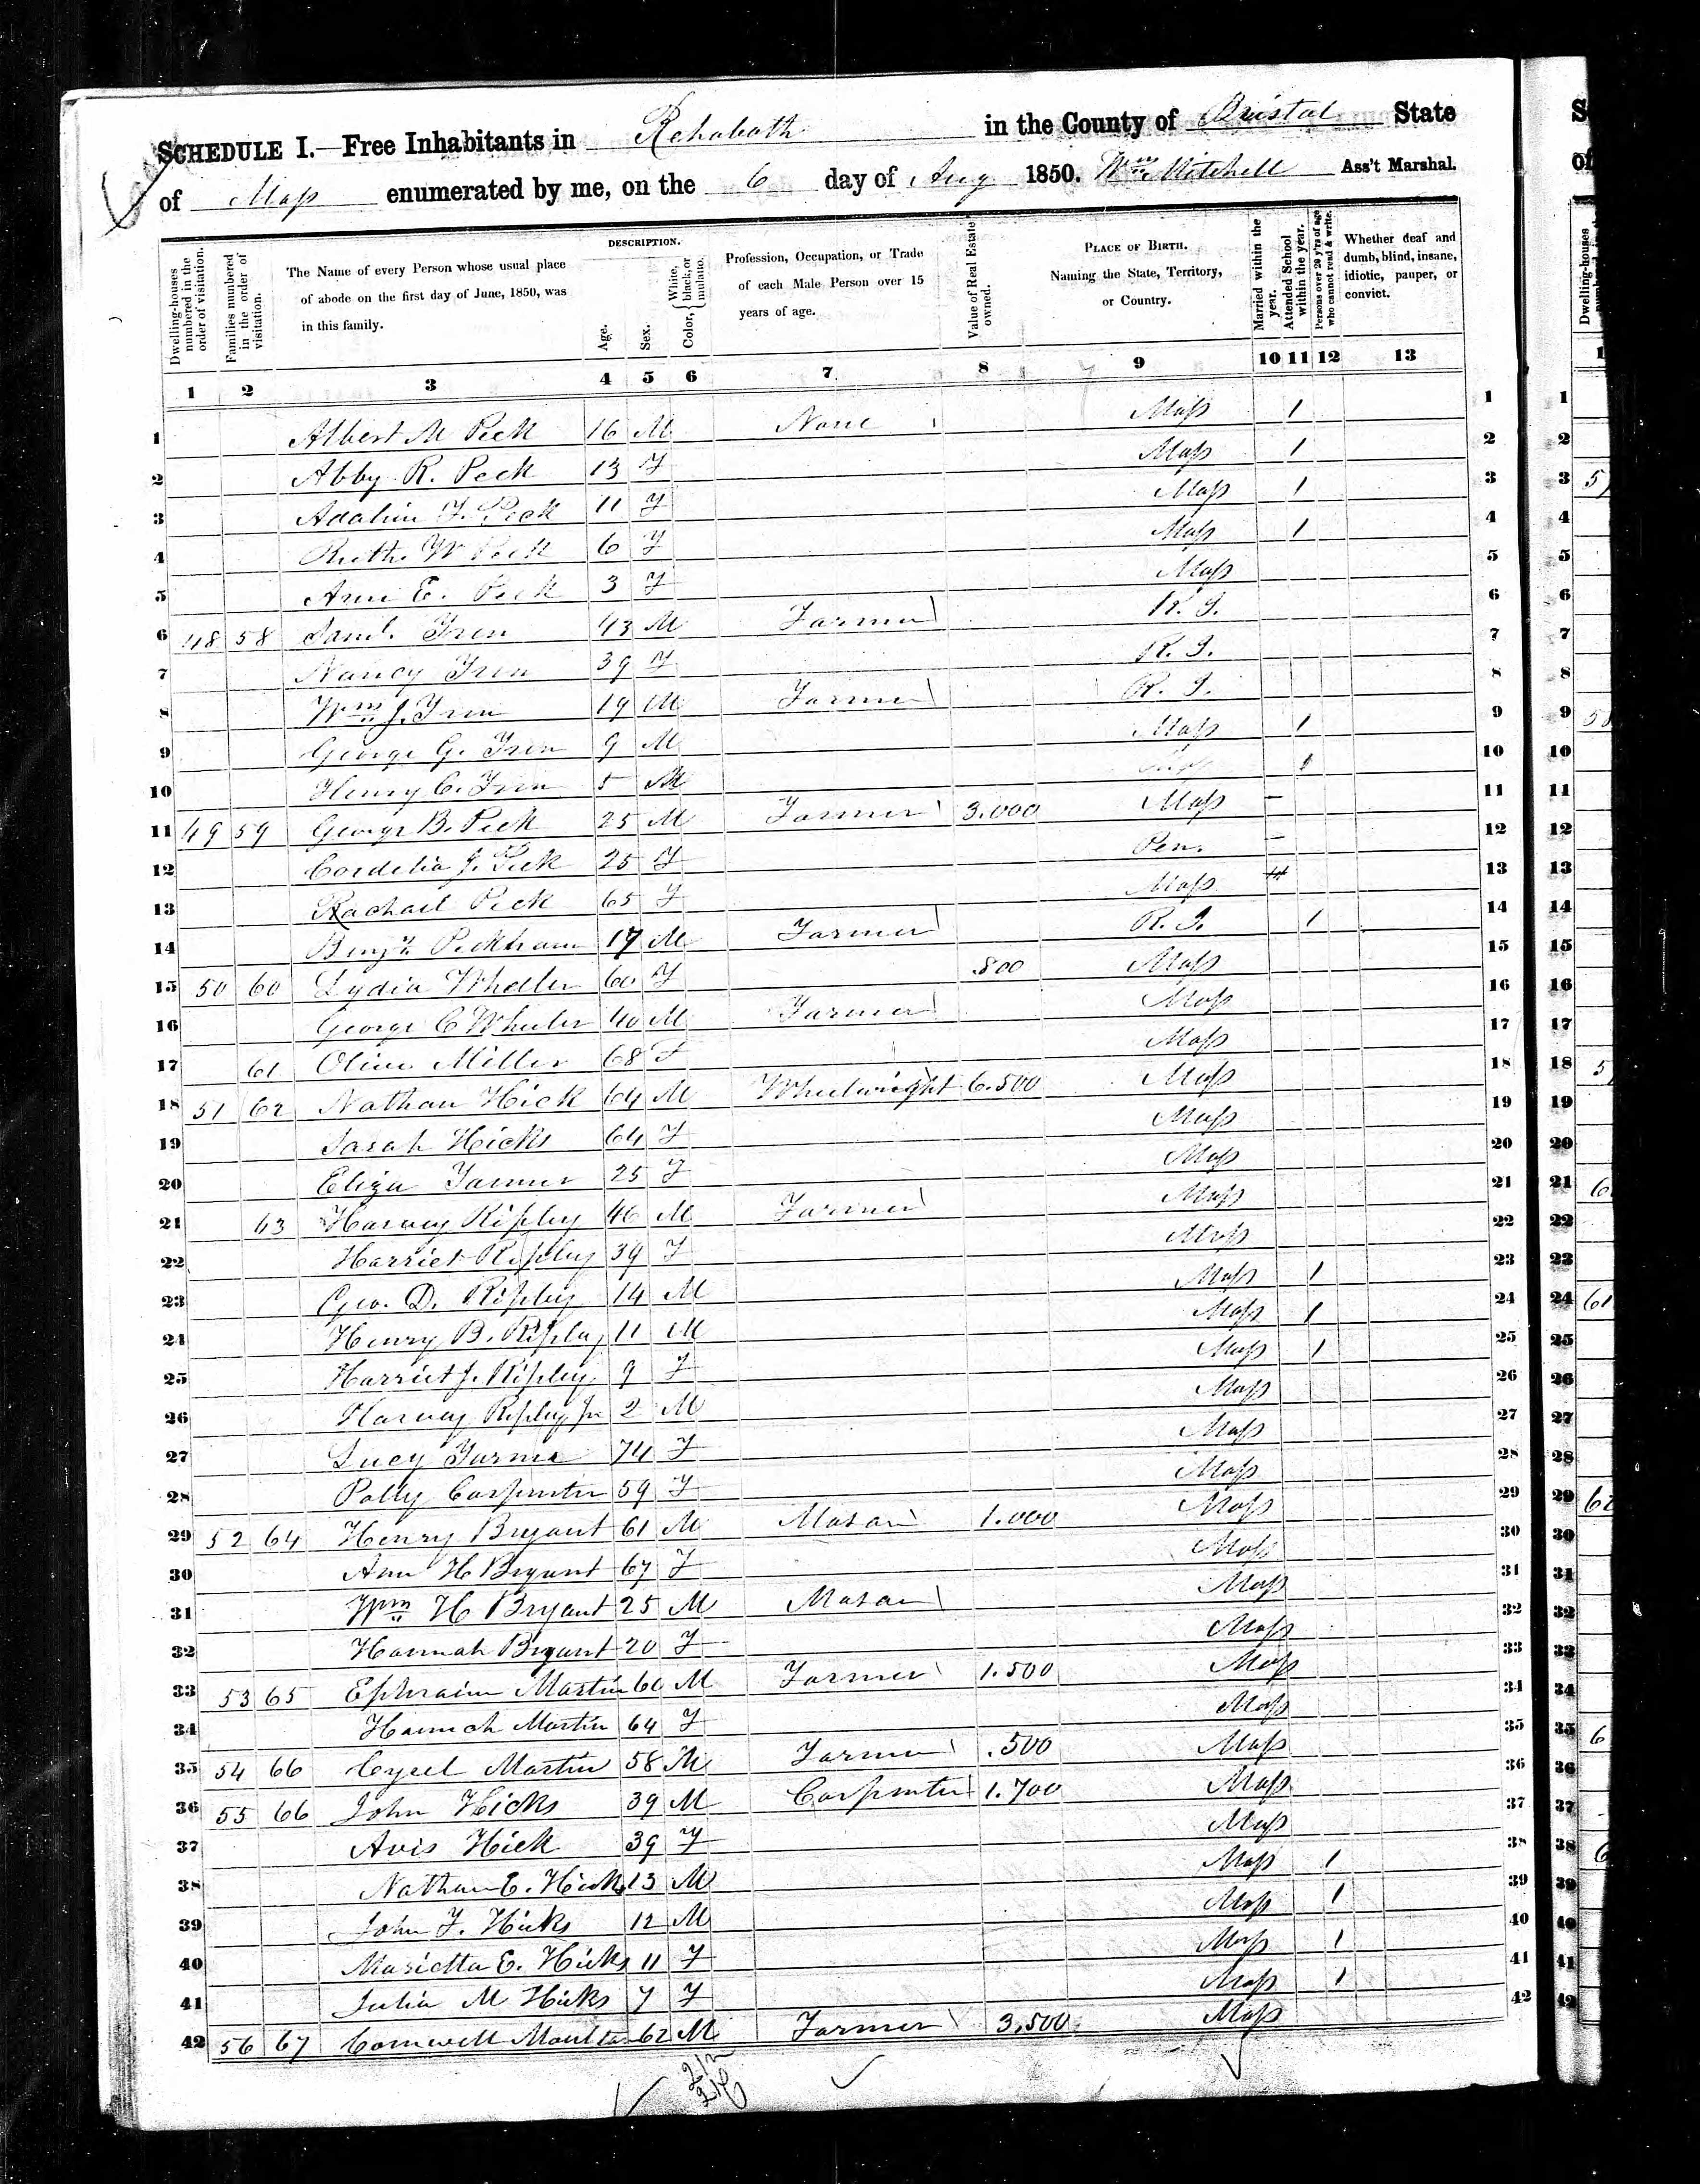 SCHEDULE I.—Free Inhabitants in Rehoboth in the County of Bristol State
of Mass enumerated by me, on the 6 day of Aug 1850. Wm Mitchell Ass't Marshal.
Dwelling-houses numbered in the order of visitation.
Families numbered in the order of visitation.
The Name of every Person whose usual place of abode on the first day of June, 1850, was in this family.
DESCRIPTION.
Age.
Sex.
Color, { White, black, or mulatto.
Profession, Occupation, or Trade of each Male Person over 15 years of age.
Value of Real Estate owned.
PLACE OF BIRTH. Naming the State, Territory, or Country.
Married within the year.
Attended School within the year.
Persons over 20 y'rs of age who cannot read & write.
Whether deaf and dumb, blind, insane, idiotic, pauper, or convict.
1 2 3 4 5 6 7 8 9 10 11 12 13
1 Albert M Peck 16 M None Mass 1 1
2 Abby R. Peck 13 F Mass 1 2
3 Adaline F. Peck 11 F Mass 1 3
4 Ruth W Peck 6 F Mass 1 4
5 Ann E. Peck 3 F Mass 5
6 48 58 Saml. 43 M Farmer R. I. 6
7 Nancy 39 F R. I. 7
8 Wm J. 19 M Farmer R. I. 8
9 George G. 9 M Mass 1 9
10 Henry C. 5 M 1 10
11 49 59 George B. Peck 25 M Farmer 3.000 Mass – 11
12 Cordelia J. Peck 25 F Pen. – 12
13 Rachael Peck 65 F Mass 13
14 Benjn Peckham 17 M Farmer R. I. 1 14
15 50 60 Lydia Wheeler 60 F .800 Mass 15
16 George C Wheeler 40 M Farmer Mass 16
17 61 Olive Miller 68 F Mass 17
18 51 62 Nathan Hick 64 M Wheelwright 6.500 Mass 18
19 Sarah Hicks 64 F Mass 19
20 Eliza 25 F Mass 20
21 63 Harvey Ripley 46 M Farmer Mass 21
22 Harriet Ripley 39 F Mass 22
23 Geo. D. Ripley 14 M Mass 1 23
24 Henry B. Ripley 11 M Mass 1 24
25 Harriet J. Ripley 9 F Mass 1 25
26 Harvey Ripley Jr 2 M Mass 26
27 Lucy 74 F Mass 27
28 Polly Carpenter 59 F Mass 28
29 52 64 Henry Bryant 61 M Mason 1.000 Mass 29
30 Ann H Bryant 67 F Mass 30
31 Wm H Bryant 25 M Mason Mass 31
32 Hannah Bryant 20 F Mass 32
33 53 65 Ephraim Martin 60 M Farmer 1.500 Mass 33
34 Hannah Martin 64 F Mass 34
35 54 66 Cyrel Martin 58 M Farmer .500 Mass 35
36 55 66 John Hicks 39 M Carpenter 1.700 Mass 36
37 Avis Hick 39 F Mass 37
38 Nathan E. Hicks 13 M Mass 1 38
39 John F. Hicks 12 M Mass 1 39
40 Marietta E. Hicks 11 F Mass 1 40
41 Julia M Hicks 7 F Mass 1 41
42 56 67 Cornwell Moulton 62 M Farmer 3.500 Mass 42